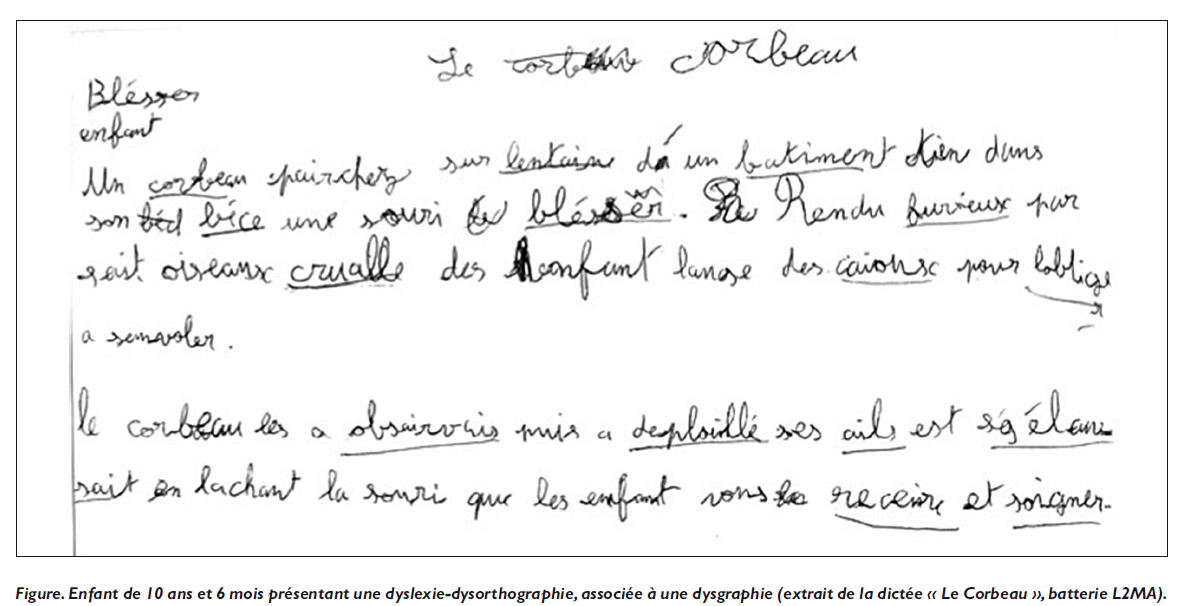 Le corbeau
Blésser
enfant
Un corbeau pairchez sur lentaine dá un batiment tien dans
son bice une souri blésser. Rendu furieux par
sait oiseaux crualle des enfant lanse des caioux pour lablige
a semvoler.
le corbeau les a obsairvais puis a deploillé ses ails est ség élan
sait en lachant la souri que les enfant vons receuire et soigner.
Figure. Enfant de 10 ans et 6 mois présentant une dyslexie-dysorthographie, associée à une dysgraphie (extrait de la dictée « Le Corbeau », batterie L2MA).